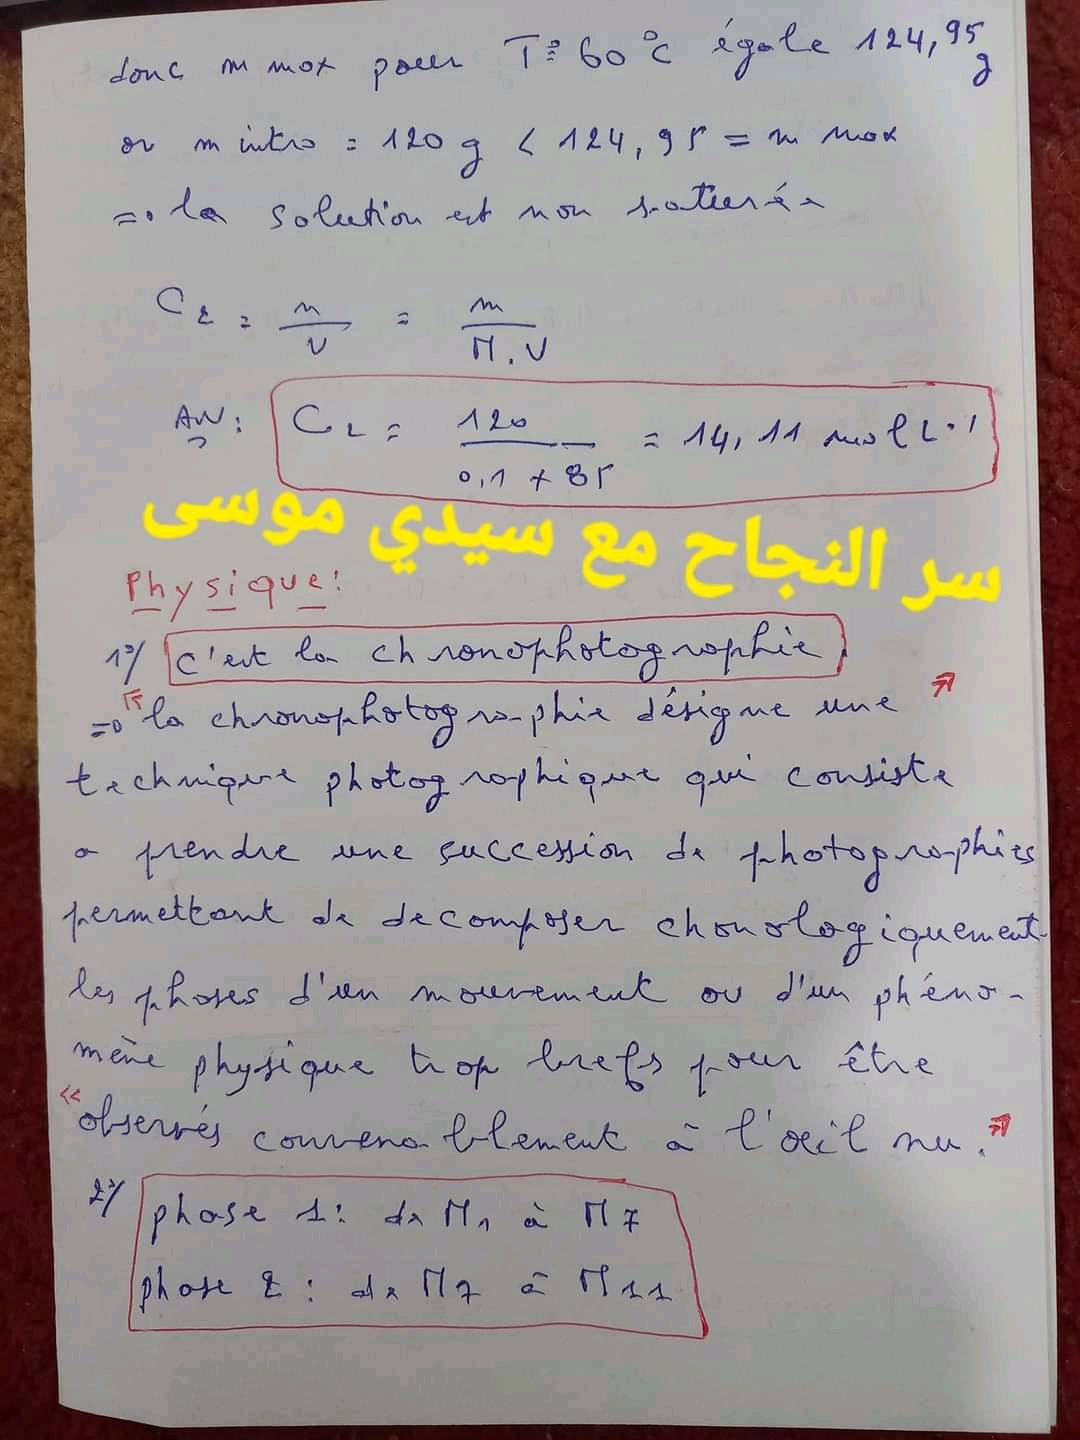 donc m max pour T° = 60°C égale 124,95 g
or m intro = 120 g < 124,95 = m max
=> la solution est non saturée
C2 = n/V = m/M.V
AN: C2 = 120/0,1 × 85 = 14,11 mol L-1
سر النجاح مع سيدي موسى
Physique:
1°/ c'est la chronophotographie.
=> "la chronophotographie désigne une "
technique photographique qui consiste
a prendre une succession de photographies
permettant de decomposer chonologiquement
les phases d'un mouvement ou d'un phéno-
mène physique trop brefs pour être
"observés convenablement à l'œil nu."
2°/ phase 1: de M1 à M7
phase 2: de M7 à M11